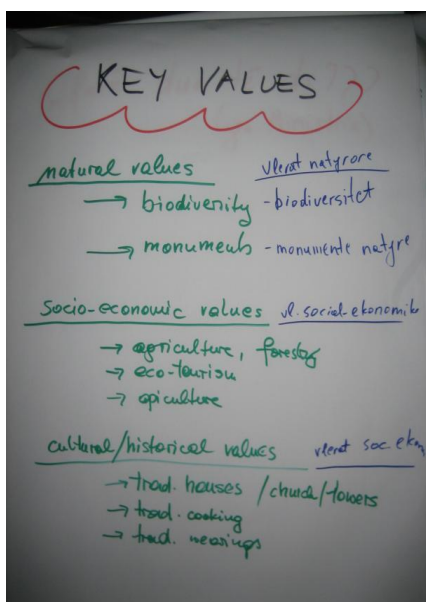 KEY VALUES
natural values vlerat natyrore
→ biodiversity - biodiversitet
→ monuments - monumente natyre
Socio-economic values vl. social-ekonomike
→ agriculture, forestry
→ eco-tourism
→ apiculture
cultural/historical values vlerat soc ekon
→ trad. houses / church / towers
→ trad. cooking
→ trad.